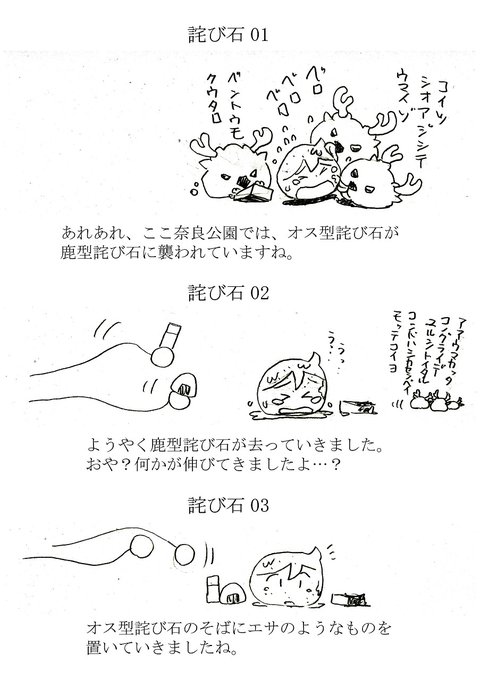 詫び石 01
コイツ
シオアジシテ
ウマイゾ
ベロ
ベロ
ベロ
ベントウモ
クウタロ
あれあれ、ここ奈良公園では、オス型詫び石が
鹿型詫び石に襲われていますね。
詫び石 02
アアウマカッタ
コンクライデ
ユルシトイタル
コンドハシカセンベイ
モッテコイヨ
うっ…
うっ…
ようやく鹿型詫び石が去っていきました。
おや？何かが伸びてきましたよ…？
詫び石 03
オス型詫び石のそばにエサのようなものを
置いていきましたね。